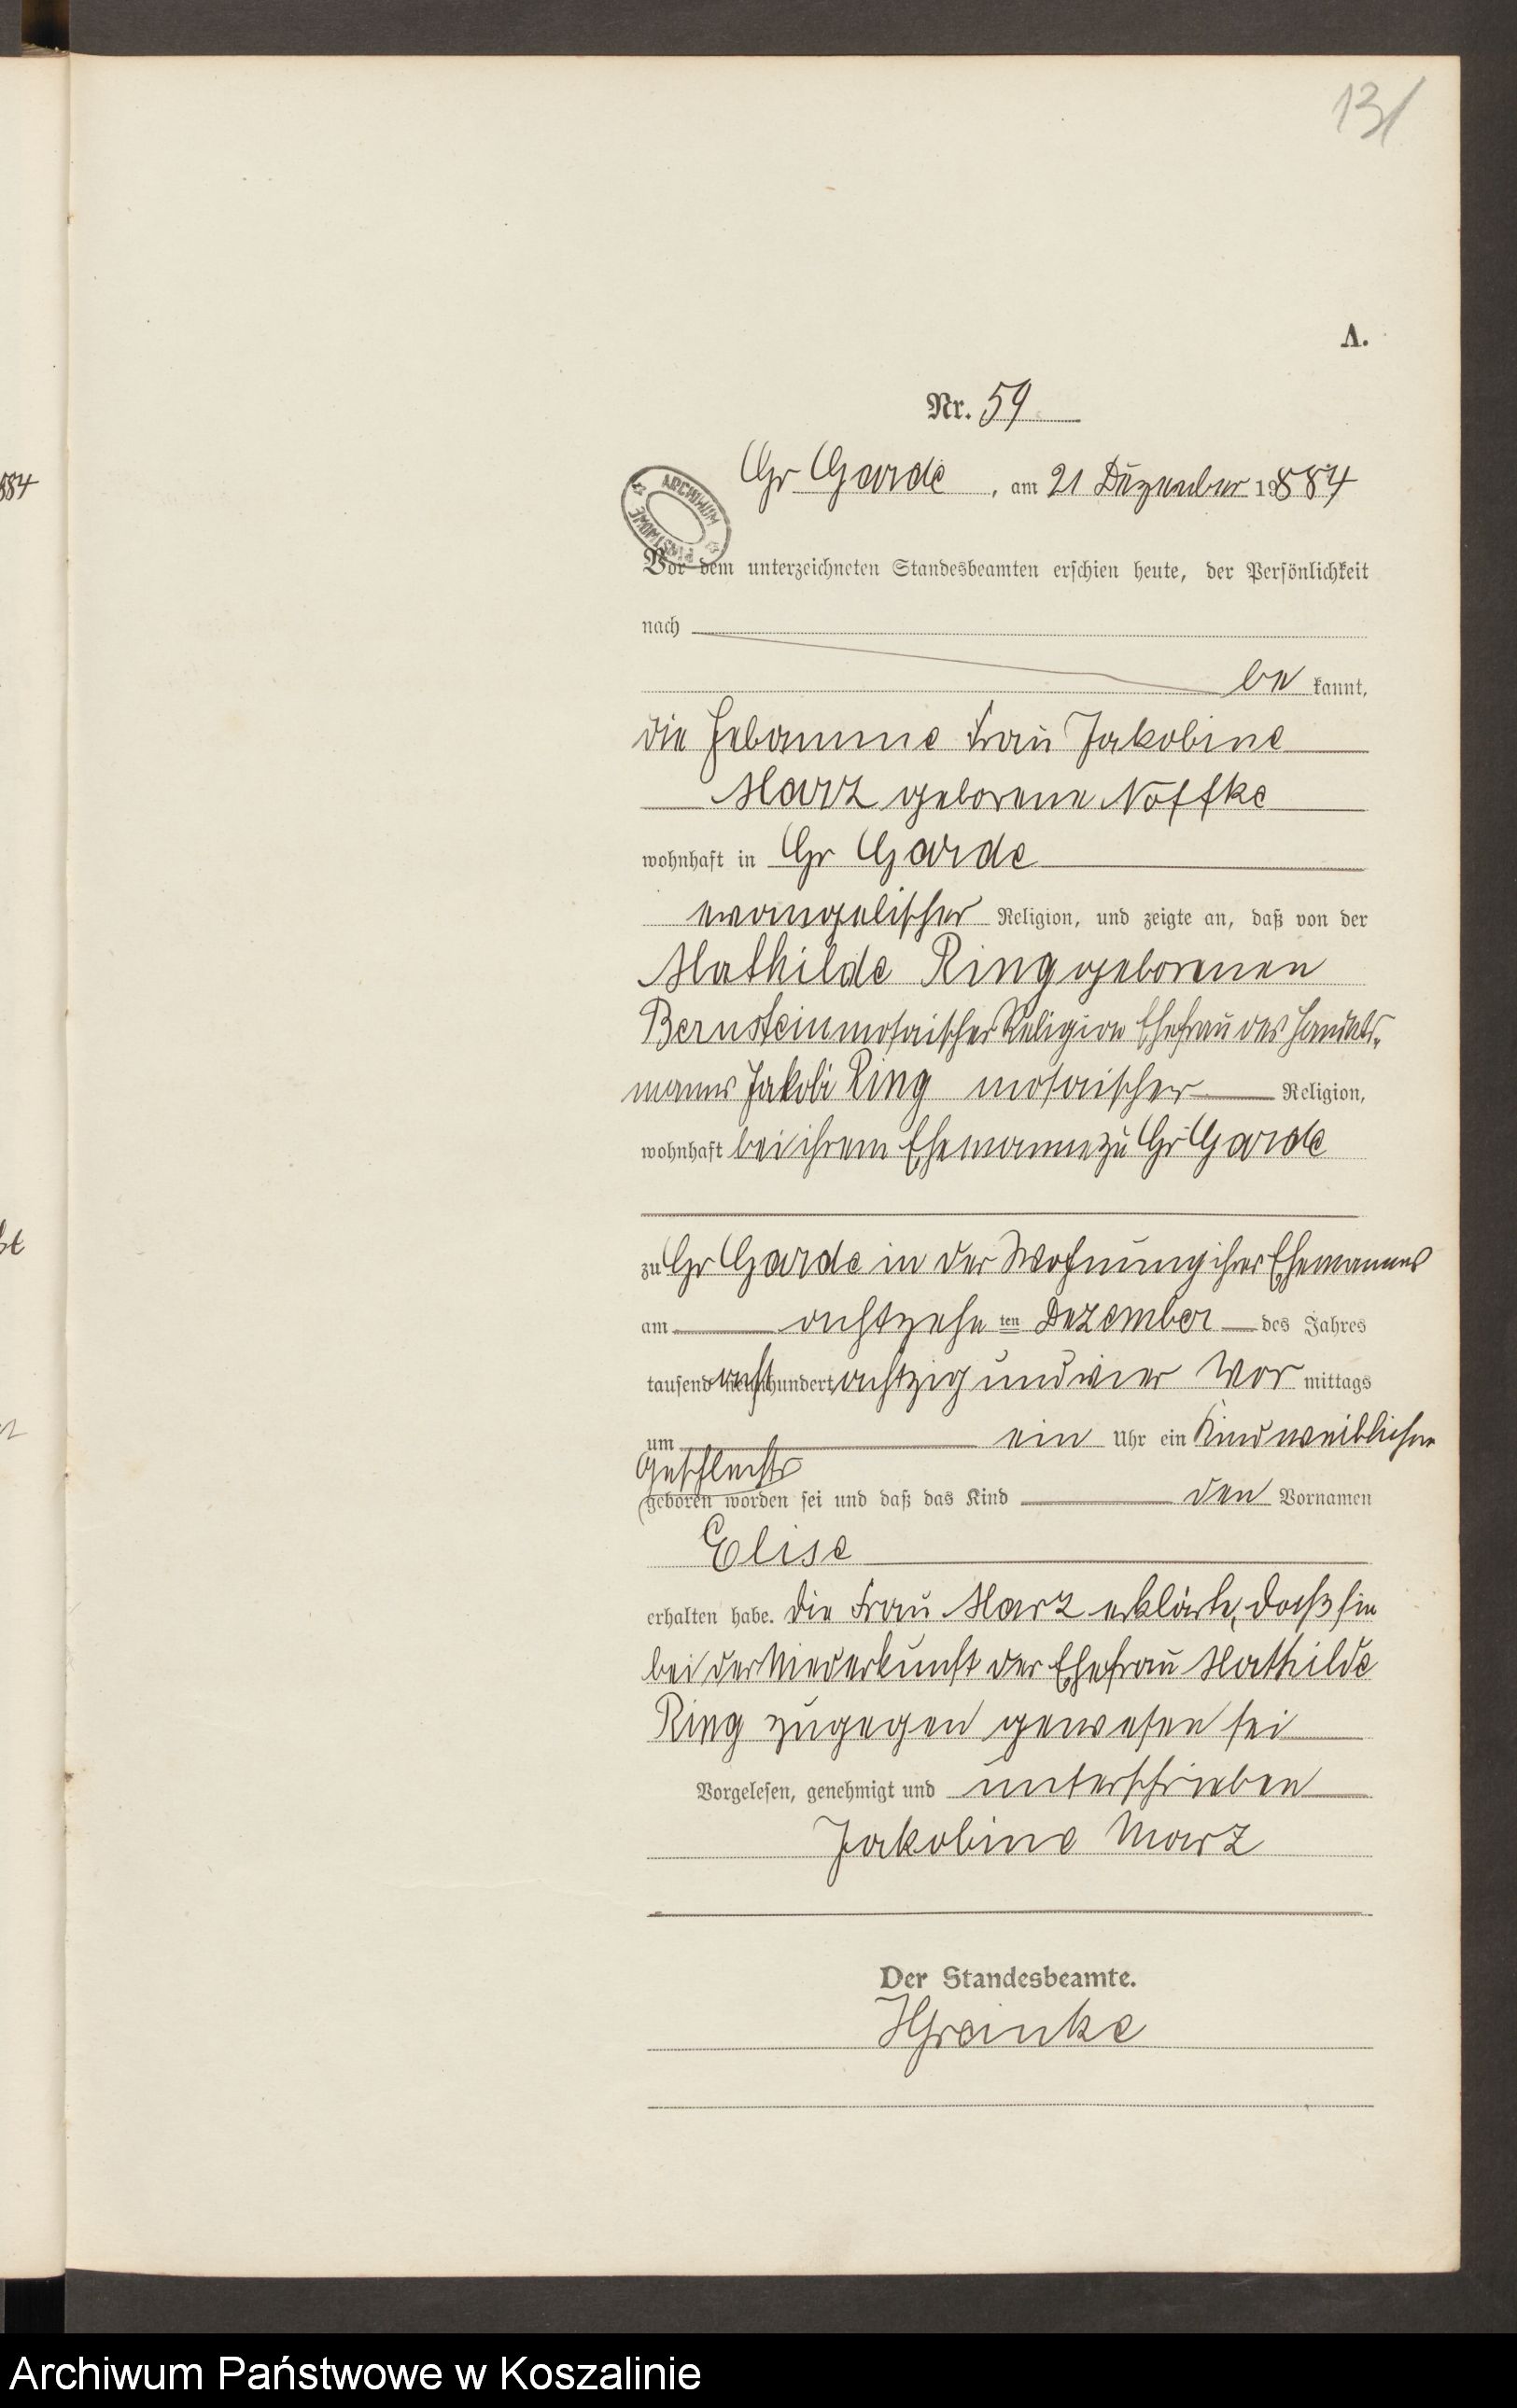 131
A.
Nr. 59
Gr Garde, am 21 Dezember 1884
ARCHIWUM PAŃSTWOWE
Vor dem unterzeichneten Standesbeamten erschien heute, der Persönlichkeit
nach
be kannt,
die Hebamme Frau Jakobine
Marz geborene Noffke
wohnhaft in Gr Garde
evangelischer Religion, und zeigte an, daß von der
Mathilde Ring geborenen
Bernstein mosaischer Religion Ehefrau des Handels-
manns Jakob Ring mosaischer Religion,
wohnhaft bei ihrem Ehemanne zu Gr Garde
zu Gr Garde in der Wohnung ihres Ehemannes
am achtzehn ten Dezember des Jahres
tausend acht hundert achtzig und vier Vor mittags
um ein Uhr ein Kind weiblichen
Geschlechts
geboren worden sei und daß das Kind den Vornamen
Elise
erhalten habe. Die Frau Marz erklärte, daß sie
bei der Niederkunft der Ehefrau Mathilde
Ring zugegen gewesen sei
Vorgelesen, genehmigt und unterschrieben
Jakobine Marz
Der Standesbeamte.
884
Archiwum Państwowe w Koszalinie